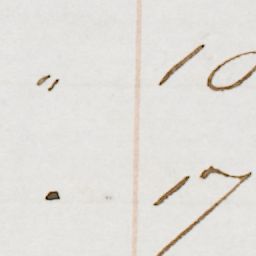 " 10
. 17